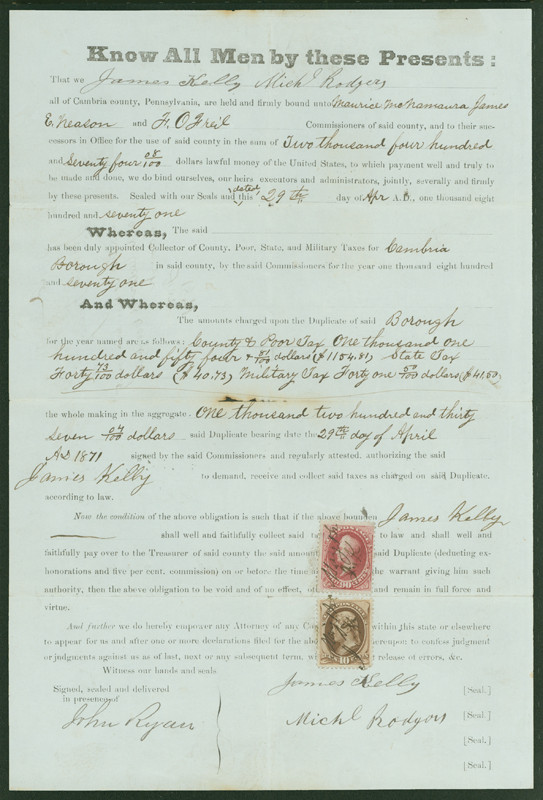 Know All Men by these Presents:
That we James Kelly Michl Rodgers
all of Cambria county, Pennsylvania, are held and firmly bound unto Maurice McNamaura James
E. Neason and F. O Freil Commissioners of said county, and to their suc-
cessors in Office for the use of said county in the sum of Two thousand four hundred
and Seventy four 08/100 dollars lawful money of the United States, to which payment well and truly to
be made and done, we do bind ourselves, our heirs executors and administrators, jointly, severally and firmly
by these presents. Sealed with our Seals and dated this 29th day of Apr A.D. one thousand eight
hundred and seventy one
Whereas, The said
has been duly appointed Collector of County, Poor, State, and Military Taxes for Cambria
Borough in said county, by the said Commissioners for the year one thousand eight hundred
and seventy one
And Whereas,
The amounts charged upon the Duplicate of said Borough
for the year named are as follows: County & Poor Tax One thousand one
hundred and fifty four & 81/100 dollars ($1154.81) State Tax
Forty 73/100 dollars ($40.73) Military Tax Forty one 50/100 dollars ($41.50)
the whole making in the aggregate. One thousand two hundred and thirty
seven 04/100 dollars said Duplicate bearing date the 29th day of April
AD 1871 signed by the said Commissioners and regularly attested, authorizing the said
James Kelly to demand, receive and collect said taxes as charged on said Duplicate.
according to law.
Now the condition of the above obligation is such that if the above bounden James Kelly
shall well and faithfully collect said to law and shall well and
faithfully pay over to the Treasurer of said county the said amount said Duplicate (deducting ex-
honorations and five per cent. commission) on or before the time the warrant giving him such
authority, then the above obligation to be void and of no effect, and remain in full force and
virtue.
And further we do hereby empower any Attorney of any within this state or elsewhere
to appear for us and after one or more declarations filed for the above thereupon to confess judgment
or judgments against us as of last, next or any subsequent term, release of errors, &c.
Witness our hands and seals
Signed, sealed and delivered
in presence of
James Kelly [Seal.]
John Ryan Michl Rodgers [Seal.]
[Seal.]
[Seal.]